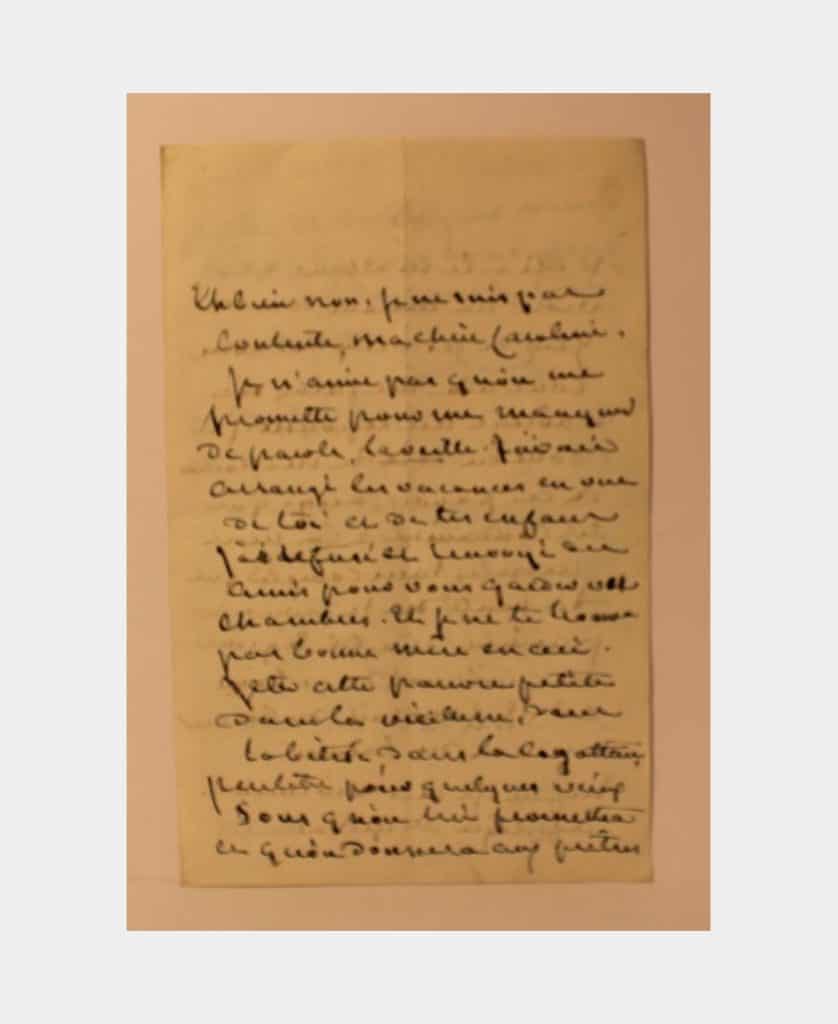 Eh bien non, je ne suis pas
contente, ma chère Caroline.
Je n'aime pas qu'on me
promette pour me manquer
de parole, la veille. J'avais
arrangé les vacances en vue
de toi et de tes enfans
J'ai refusé et renvoyé des
amis pour vous garder vos
chambres. Et je ne te trouve
pas bonne mère en ceci.
Jeter cette pauvre petite
dans la vieillesse, dans
la bêtise, dans la cagotterie,
peutêtre pour quelques vieux
sous qu'on lui promettra
et qu'on donnera aux prêtres